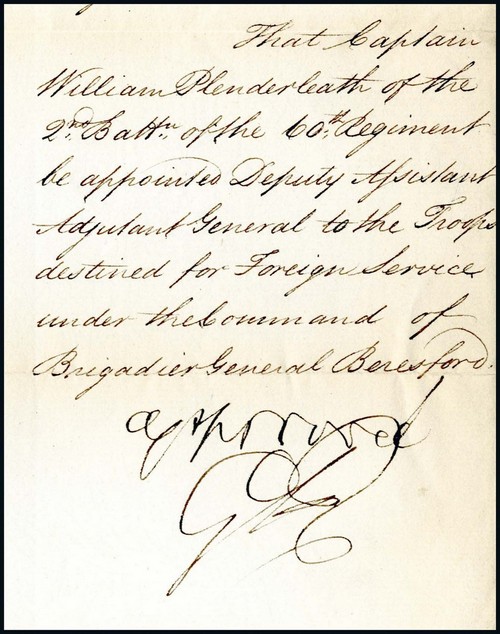 That Captain
William Plenderleath of the
2nd Battn. of the 60th Regiment
be appointed Deputy Assistant
Adjutant General to the Troops
destined for Foreign Service
under the Command of
Brigadier General Beresford.
approved
GR